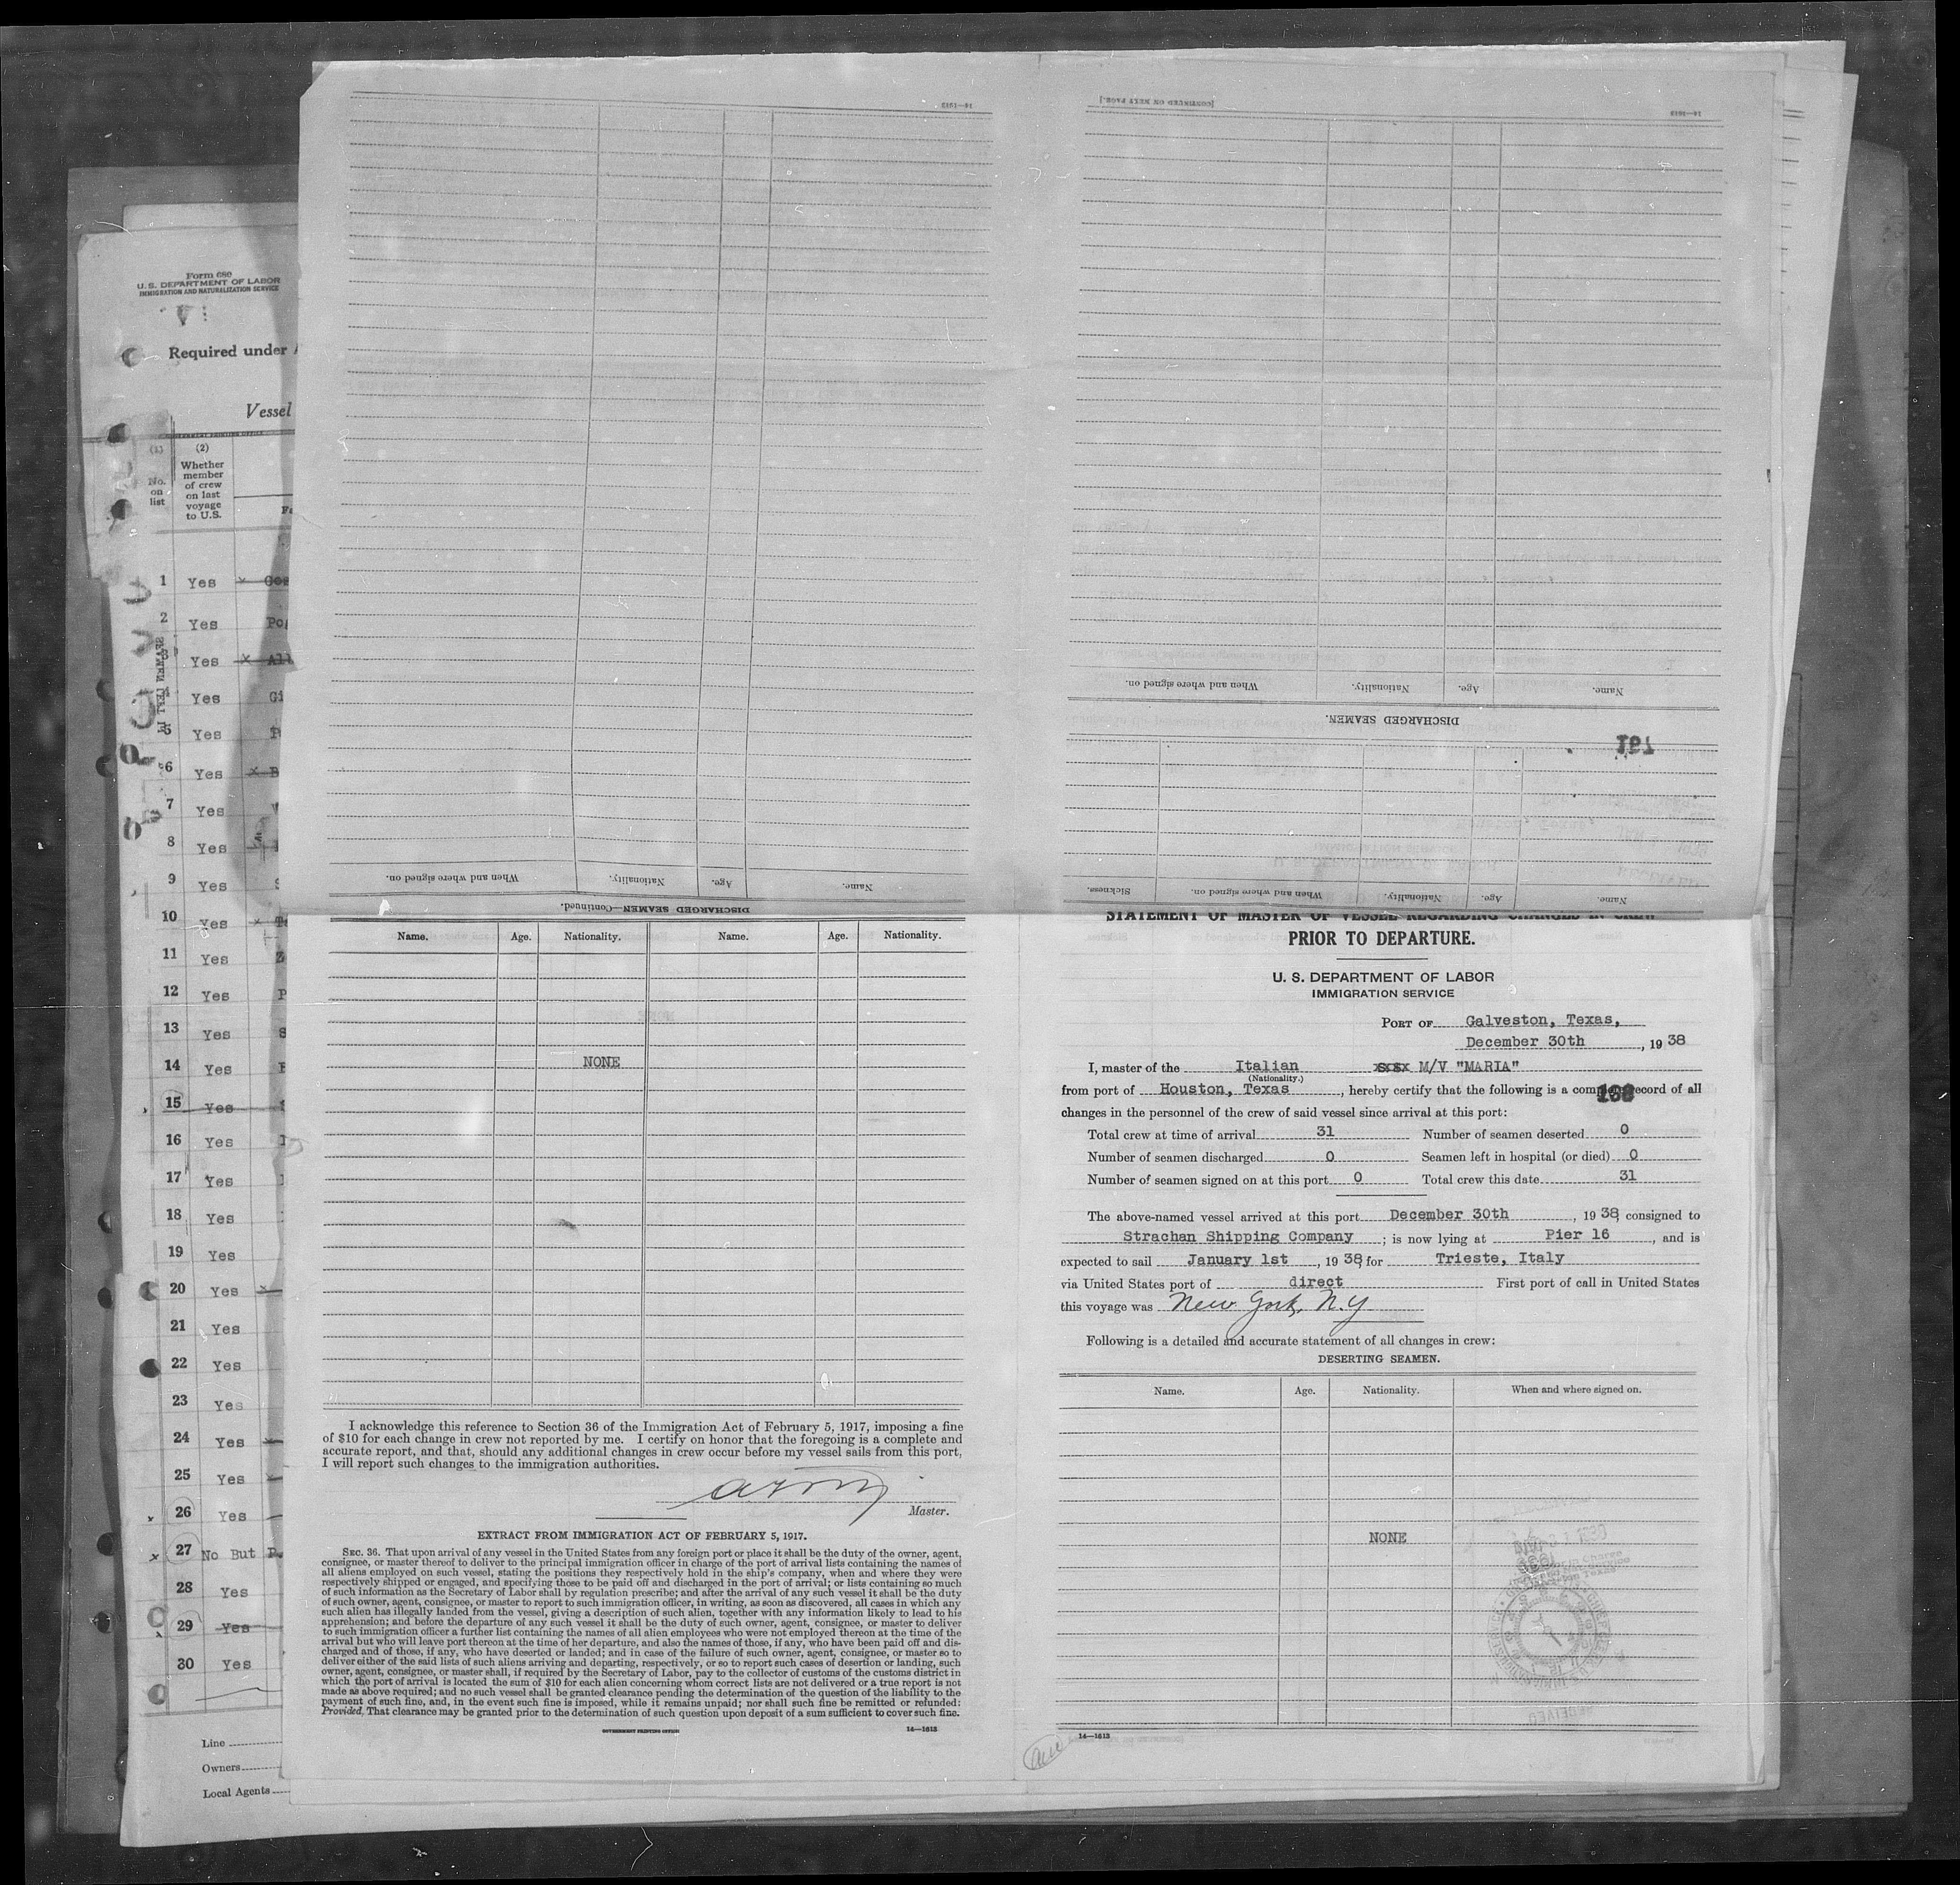 Form 680
U. S. DEPARTMENT OF LABOR
IMMIGRATION AND NATURALIZATION SERVICE
Required under
Vessel
(1)
No.
on
list
(2)
Whether
member
of crew
on last
voyage
to U.S.
1 Yes
2 Yes
Yes
4 Yes
5 Yes
6 Yes
7 Yes
8 Yes
9 Yes
10 Yes
11 Yes
12 Yes
13 Yes
14 Yes
15 Yes
16 Yes
17 Yes
18 Yes
19 Yes
20 Yes
21 Yes
22 Yes
23 Yes
24 Yes
25 Yes
26 Yes
27 No But
28 Yes
29 Yes
30 Yes
Line
Owners
Local Agents
14—1613
Name. Age. Nationality. When and where signed on.
DISCHARGED SEAMEN—Continued.
[CONTINUED ON NEXT PAGE.]
14—1613
Name. Age. Nationality. When and where signed on.
DISCHARGED SEAMEN.
Name. Age. Nationality. When and where signed on. Sickness.
Name. Age. Nationality. Name. Age. Nationality.
NONE
I acknowledge this reference to Section 36 of the Immigration Act of February 5, 1917, imposing a fine
of $10 for each change in crew not reported by me. I certify on honor that the foregoing is a complete and
accurate report, and that, should any additional changes in crew occur before my vessel sails from this port,
I will report such changes to the immigration authorities.
Master.
EXTRACT FROM IMMIGRATION ACT OF FEBRUARY 5, 1917.
SEC. 36. That upon arrival of any vessel in the United States from any foreign port or place it shall be the duty of the owner, agent,
consignee, or master thereof to deliver to the principal immigration officer in charge of the port of arrival lists containing the names of
all aliens employed on such vessel, stating the positions they respectively hold in the ship's company, when and where they were
respectively shipped or engaged, and specifying those to be paid off and discharged in the port of arrival; or lists containing so much
of such information as the Secretary of Labor shall by regulation prescribe; and after the arrival of any such vessel it shall be the duty
of such owner, agent, consignee, or master to report to such immigration officer, in writing, as soon as discovered, all cases in which any
such alien has illegally landed from the vessel, giving a description of such alien, together with any information likely to lead to his
apprehension; and before the departure of any such vessel it shall be the duty of such owner, agent, consignee, or master to deliver
to such immigration officer a further list containing the names of all alien employees who were not employed thereon at the time of the
arrival but who will leave port thereon at the time of her departure, and also the names of those, if any, who have been paid off and dis-
charged and of those, if any, who have deserted or landed; and in case of the failure of such owner, agent, consignee, or master so to
deliver either of the said lists of such aliens arriving and departing, respectively, or so to report such cases of desertion or landing, such
owner, agent, consignee, or master shall, if required by the Secretary of Labor, pay to the collector of customs of the customs district in
which the port of arrival is located the sum of $10 for each alien concerning whom correct lists are not delivered or a true report is not
made as above required; and no such vessel shall be granted clearance pending the determination of the question of the liability to the
payment of such fine, and, in the event such fine is imposed, while it remains unpaid; nor shall such fine be remitted or refunded:
Provided, That clearance may be granted prior to the determination of such question upon deposit of a sum sufficient to cover such fine.
GOVERNMENT PRINTING OFFICE 14—1613
STATEMENT OF MASTER OF VESSEL REGARDING CHANGES IN CREW
PRIOR TO DEPARTURE.
U. S. DEPARTMENT OF LABOR
IMMIGRATION SERVICE
PORT OF Galveston, Texas,
December 30th, 1938
I, master of the Italian M/V "MARIA"
(Nationality.)
from port of Houston, Texas, hereby certify that the following is a complete record of all
changes in the personnel of the crew of said vessel since arrival at this port:
Total crew at time of arrival 31 Number of seamen deserted 0
Number of seamen discharged 0 Seamen left in hospital (or died) 0
Number of seamen signed on at this port 0 Total crew this date 31
The above-named vessel arrived at this port December 30th, 1938, consigned to
Strachan Shipping Company; is now lying at Pier 16, and is
expected to sail January 1st, 1938, for Trieste, Italy
via United States port of direct First port of call in United States
this voyage was New York, N.Y
Following is a detailed and accurate statement of all changes in crew:
DESERTING SEAMEN.
Name. Age. Nationality. When and where signed on.
NONE
14—1613